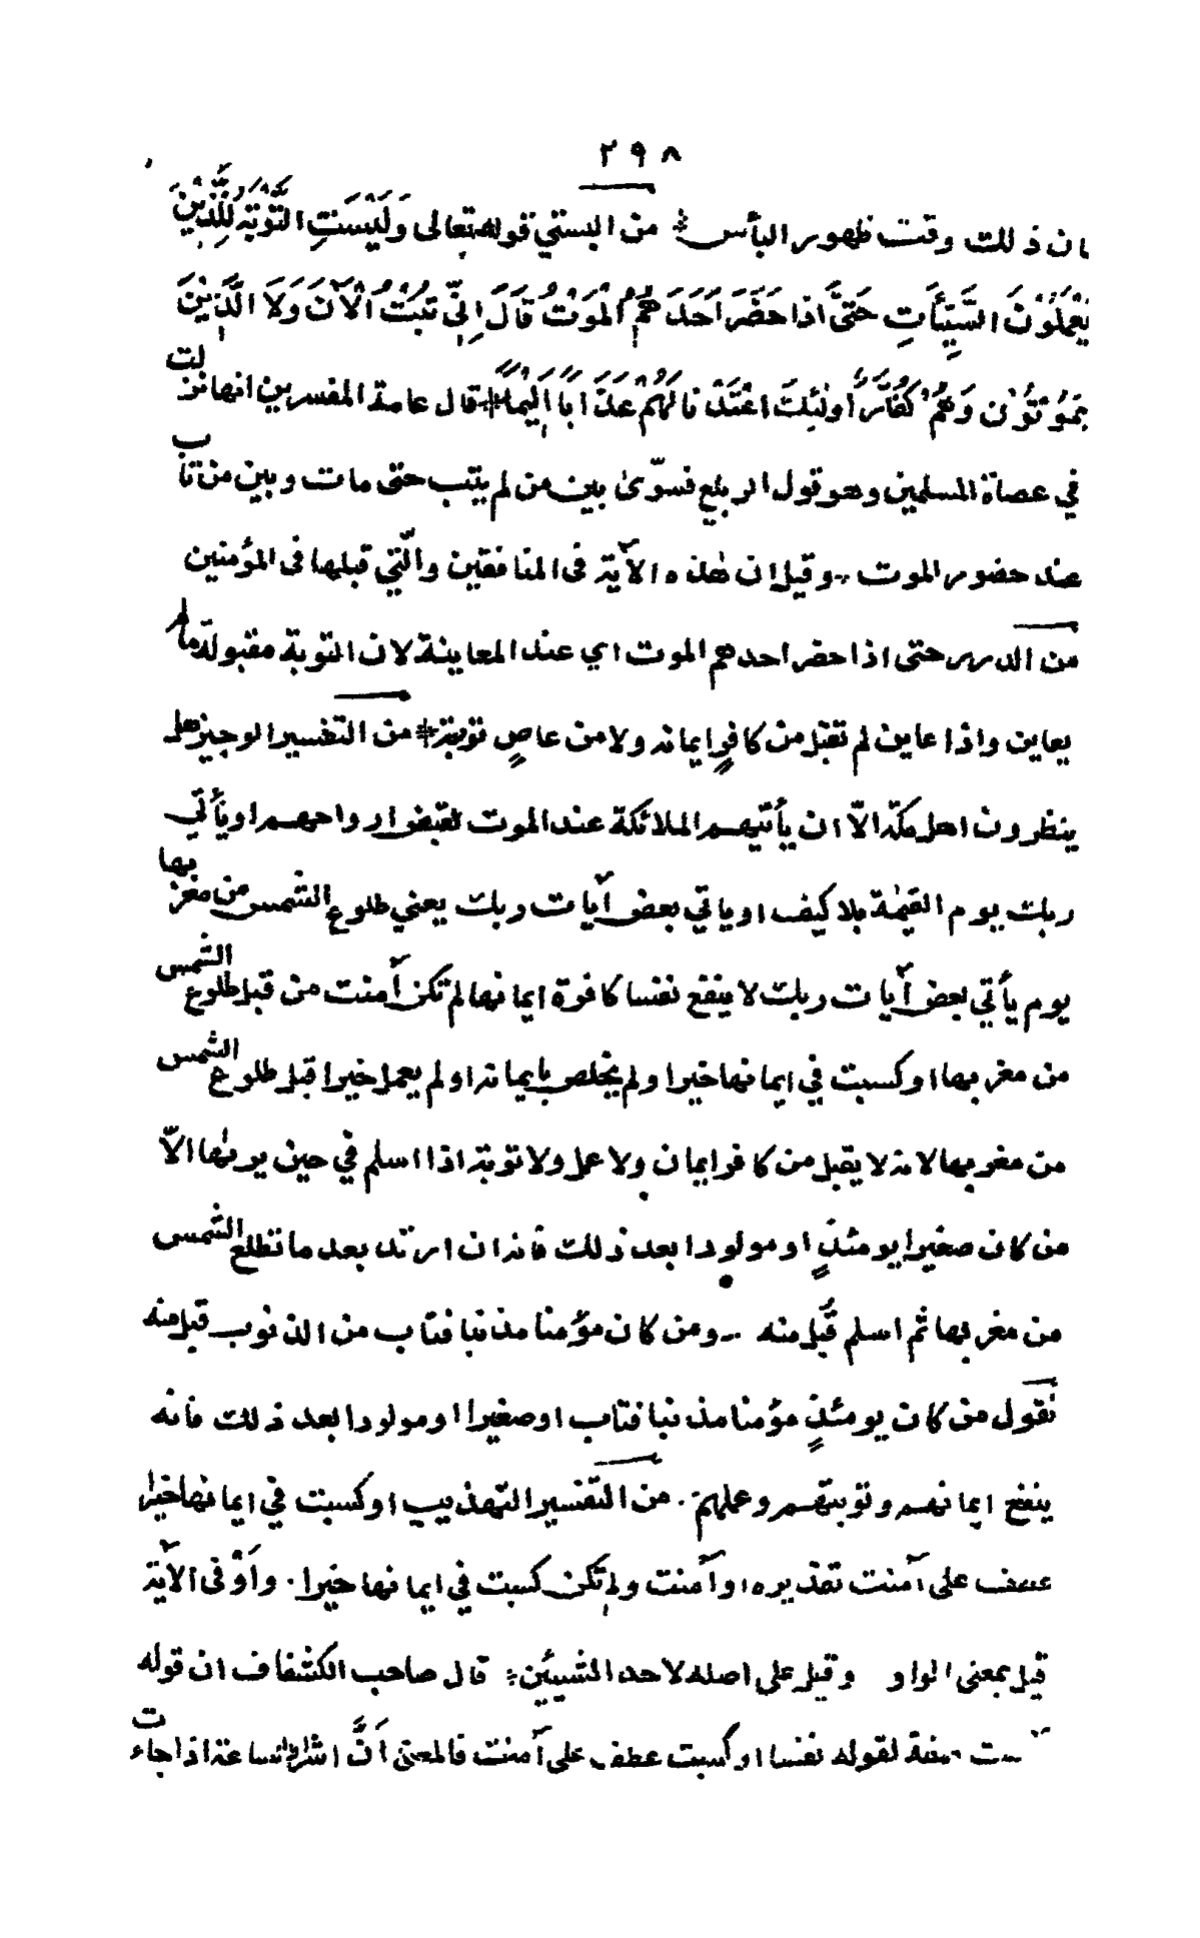 ٢٩٨
ان ذلك وقت ظهور البأس من البستي قوله تعالى وَلَيْسَتِ التَّوْبَةُ لِلَّذِينَ
يَعْمَلُوْنَ السَّيِّئَاتِ حَتَّى اذا حَضَرَ اَحَدَهُمُ الْمَوْتُ قَالَ اِنِّي تُبْتُ الْآنَ وَلَا الَّذِيْنَ
يَمُوْتُوْنَ وَهُمْ كُفَّارٌ اولٰئِكَ اعْتَدْنَا لَهُمْ عَذَابًا اَلِيْمًا قال عامة المفسرين انها نزلت
في عصاة المسلمين وهو قول الربيع فسوّى بين من لم يتب حتى مات وبين من تاب
عند حضور الموت وقيل ان هذه الآية في المنافقين والّتي قبلها في المؤمنين
من الدرر حتى اذا حضر احدهم الموت اي عند المعاينة لان التوبة مقبولة ما لم
يعاين واذا عاين لم تقبل من كافرٍ ايمانه ولا من عاصٍ توبته من التفسير الوجيز هل
ينظرون اهل مكة الّا ان يأتيهم الملائكة عند الموت لقبض ارواحهم او يأتي
ربك يوم القيٰمة بلا كيف او ياتي بعض آيات ربك يعني طلوع الشمس من مغربها
يوم يأتي بعض آيات ربك لا ينفع نفسا كافرة ايمانها لم تكن آمنت من قبل طلوع الشمس
من مغربها او كسبت في ايمانها خيرا ولم يخلص بايمانه او لم يعمل خيرا قبل طلوع الشمس
من مغربها لانه لا يقبل من كافر ايمان ولا عمل ولا توبة اذا اسلم في حين يرىٰها الّا
من كان صغيرا يومئذٍ او مولودا بعد ذلك فانه ان ارتد بعد ما تطلع الشمس
من مغربها ثم اسلم قُبل منه ومن كان مؤمنا مذنبا فتاب من الذنوب قبل منه
نقول من كان يومئذٍ مؤمنا مذنبا فتاب او صغيرا او مولودا بعد ذلك فانه
ينفع ايمانهم وتوبتهم وعملهم. من التفسير التهذيب او كسبت في ايمانها خيرا
عطف على آمنت تقديره او آمنت ولم تكن كسبت في ايمانها خيرا. وَاَوْ في الآية
قيل بمعنى الواو وقيل على اصله لاحد الشيئين قال صاحب الكشاف ان قوله
صفة لقوله نفسا او كسبت عطف على آمنت فالمعنى اَنَّ اشراط الساعة اذا جاءت